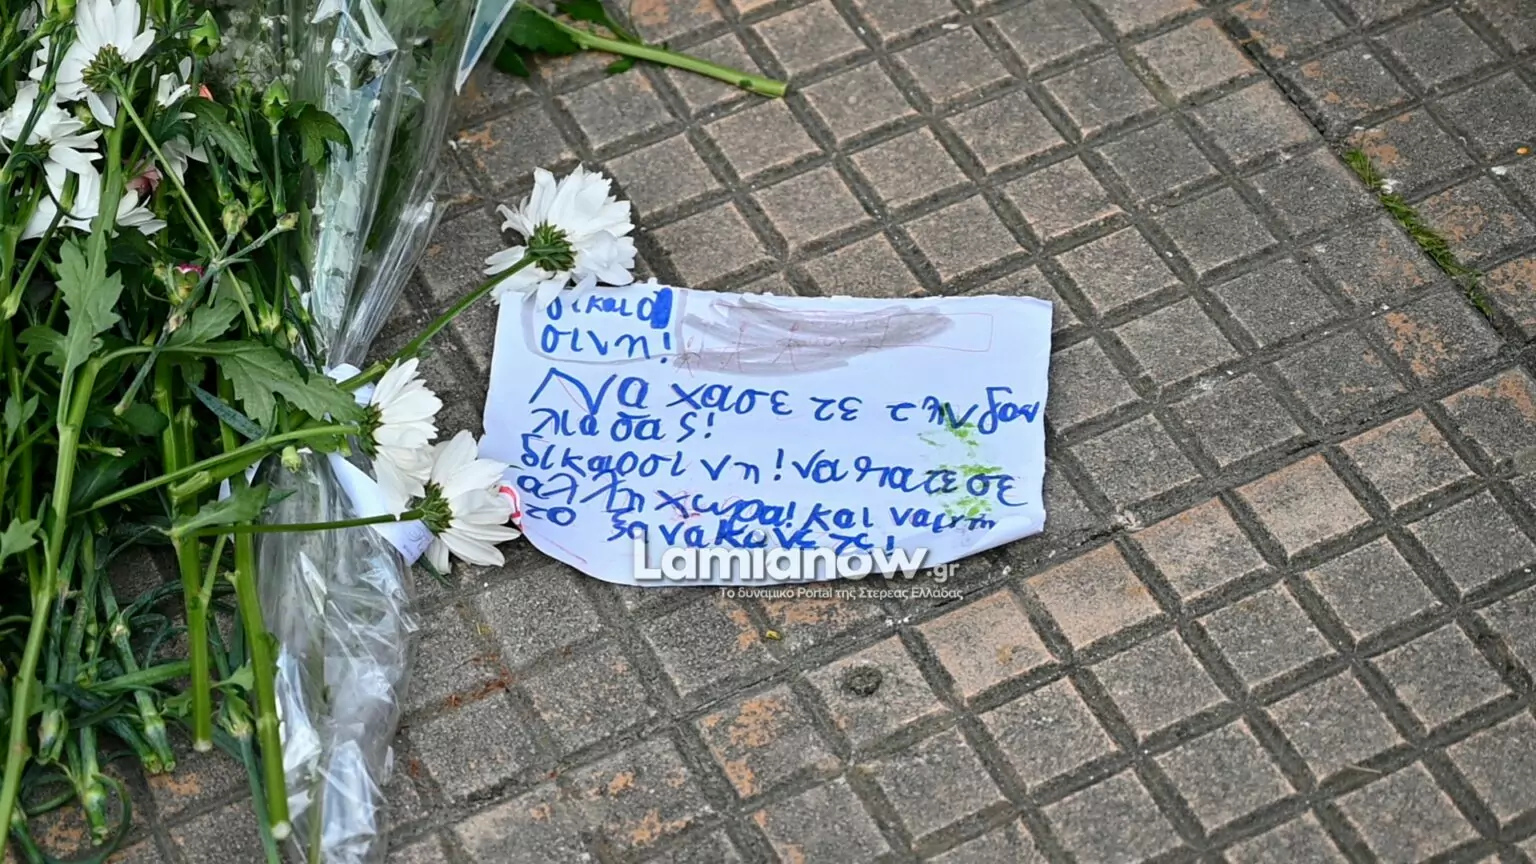 δικαιο
σινη!
Να χασε τε την δου
λια σας!
δικαοσι νη! να πατε σε
αλλη χωρα! και να μην
το ξανακανε τε!
Lamianow.gr
Το δυναμικό Portal της Στερεάς Ελλάδας